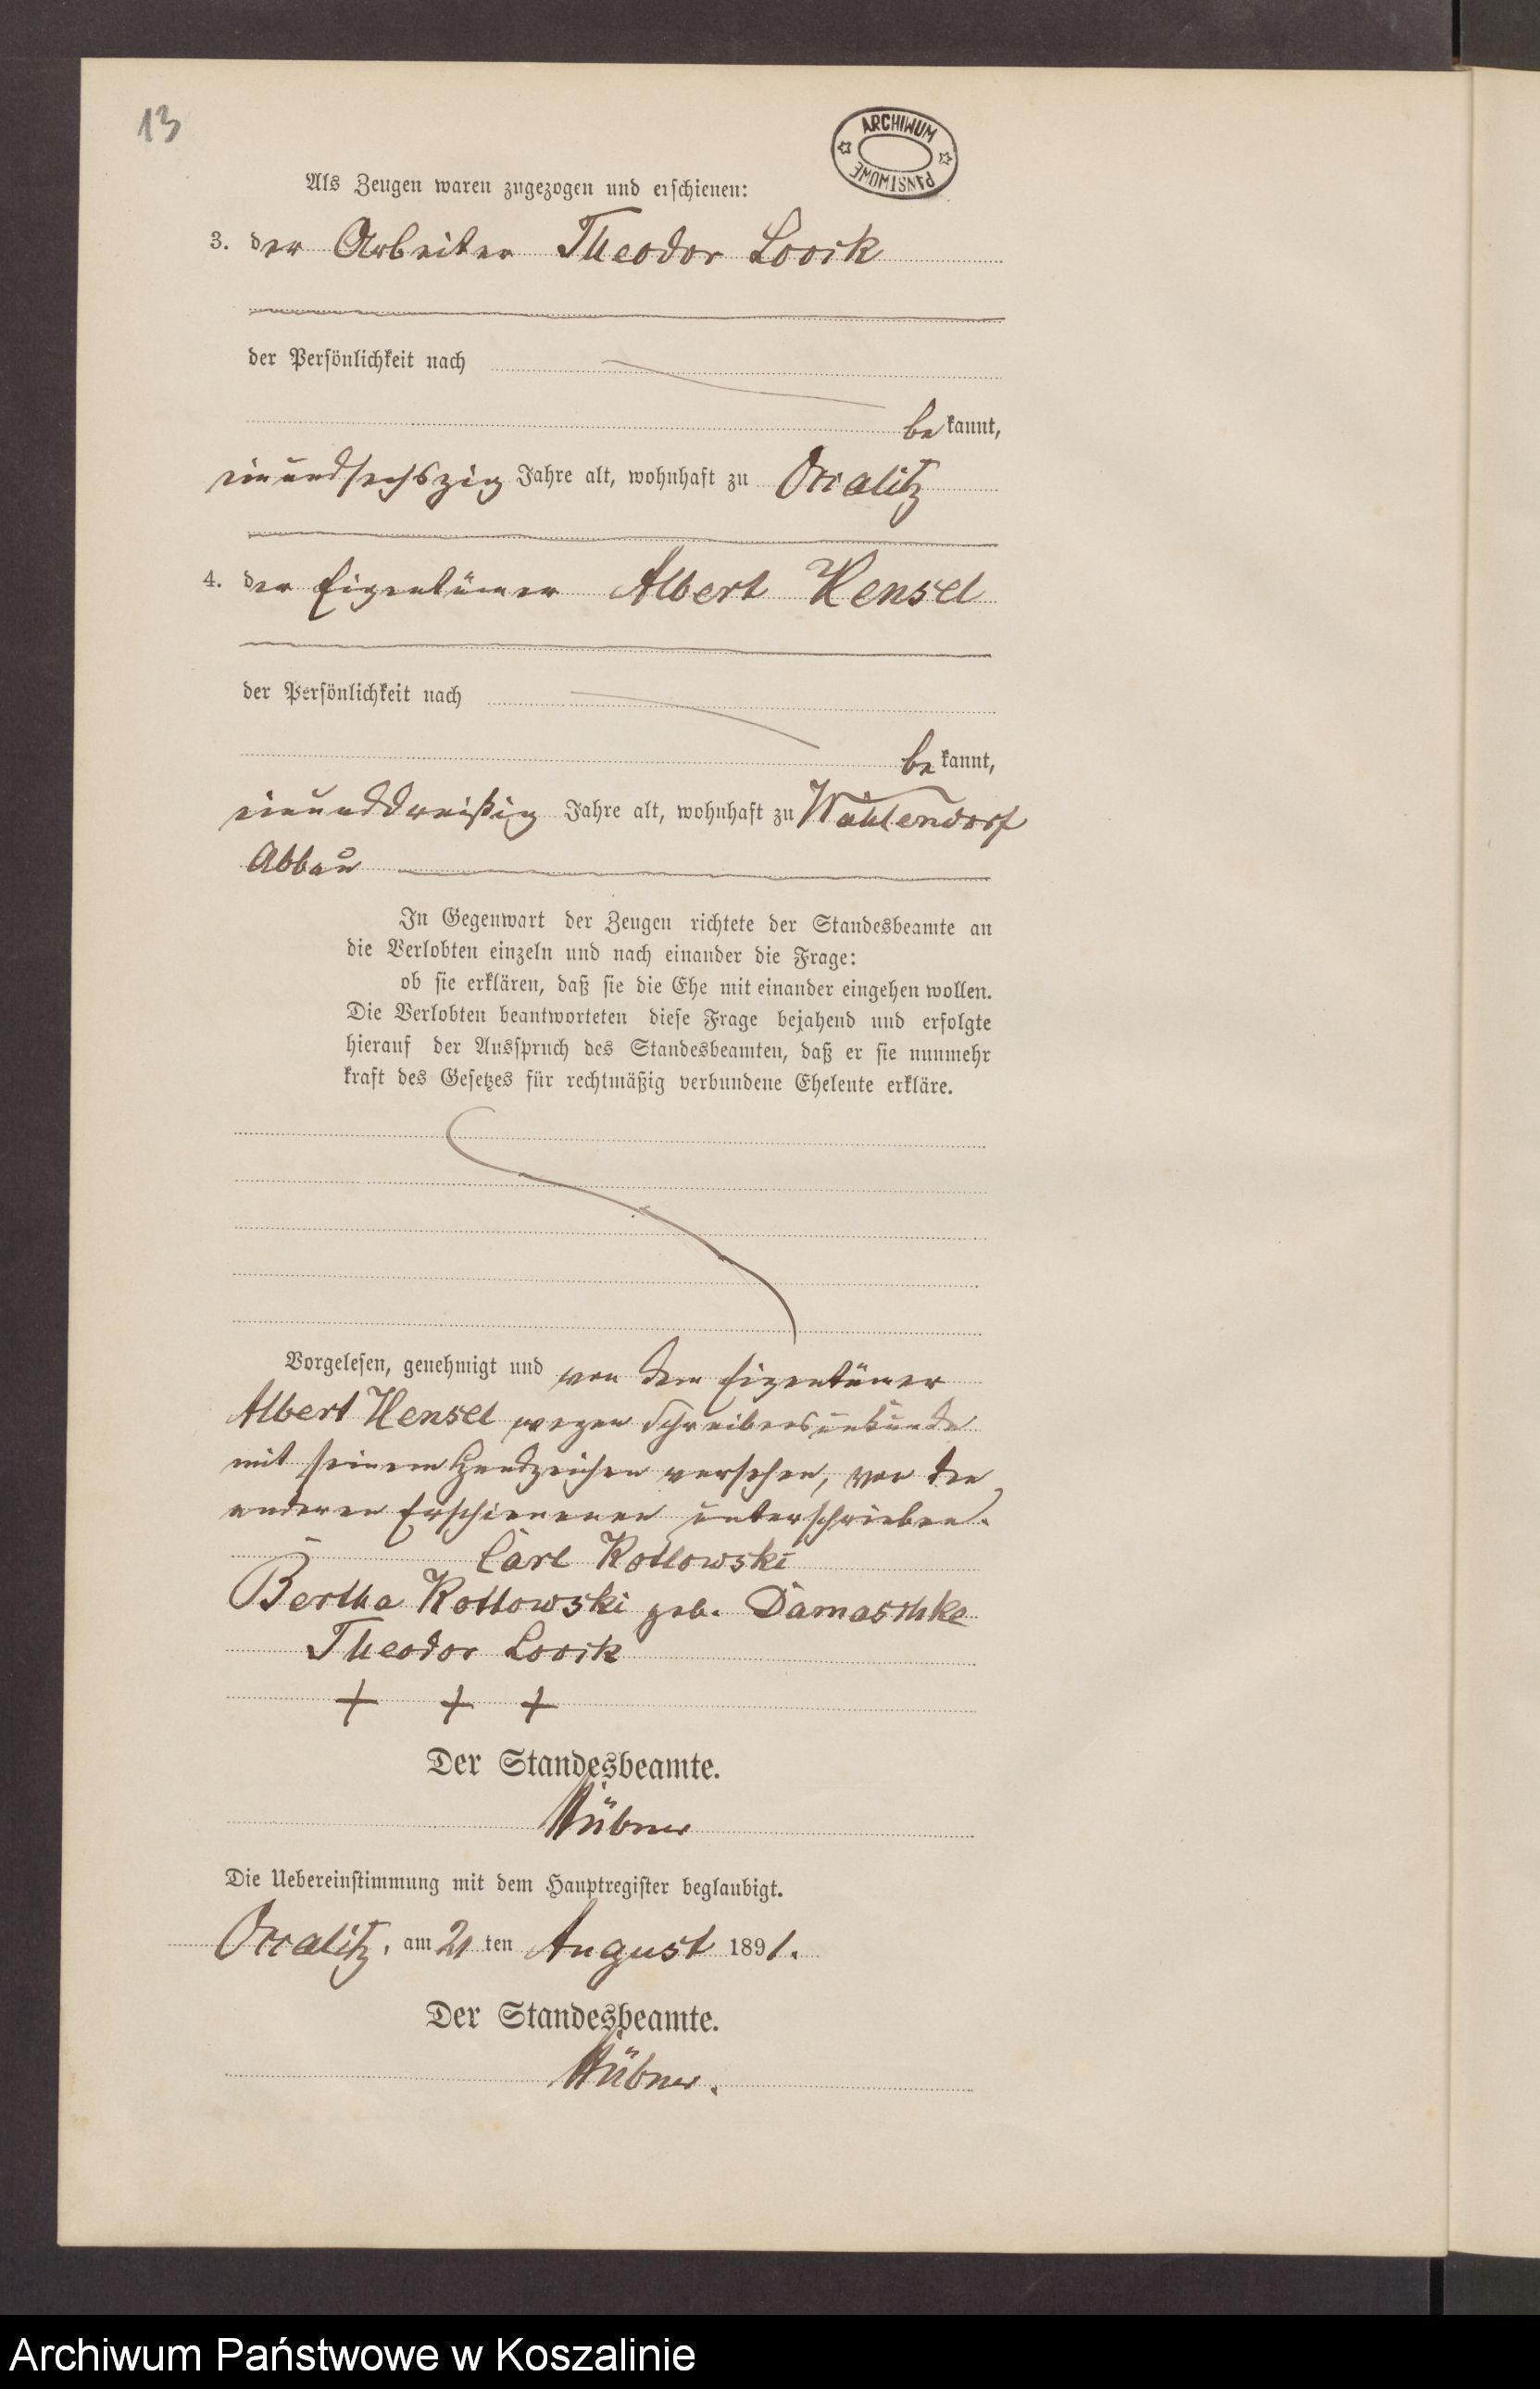 13
ARCHIWUM PAŃSTWOWE
Als Zeugen waren zugezogen und erschienen:
3. der Arbeiter Theodor Loock
der Persönlichkeit nach
bekannt,
einundsechszig Jahre alt, wohnhaft zu Occalitz
4. der Eigentümer Albert Hensel
der Persönlichkeit nach
bekannt,
einunddreißig Jahre alt, wohnhaft zu Wahlendorf
Abbau
In Gegenwart der Zeugen richtete der Standesbeamte an
die Verlobten einzeln und nach einander die Frage:
ob sie erklären, daß sie die Ehe mit einander eingehen wollen.
Die Verlobten beantworteten diese Frage bejahend und erfolgte
hierauf der Ausspruch des Standesbeamten, daß er sie nunmehr
kraft des Gesetzes für rechtmäßig verbundene Eheleute erkläre.
Vorgelesen, genehmigt und von dem Eigentümer
Albert Hensel wegen Schreibensunkunde
mit seinem Handzeichen versehen, von den
anderen Erschienenen unterschrieben.
Carl Kotlowski
Bertha Kotlowski geb. Damaschke
Theodor Loock
+ + +
Der Standesbeamte.
Hübner
Die Uebereinstimmung mit dem Hauptregister beglaubigt.
Occalitz, am 21 ten August 1891.
Der Standesbeamte.
Hübner.
Archiwum Państwowe w Koszalinie